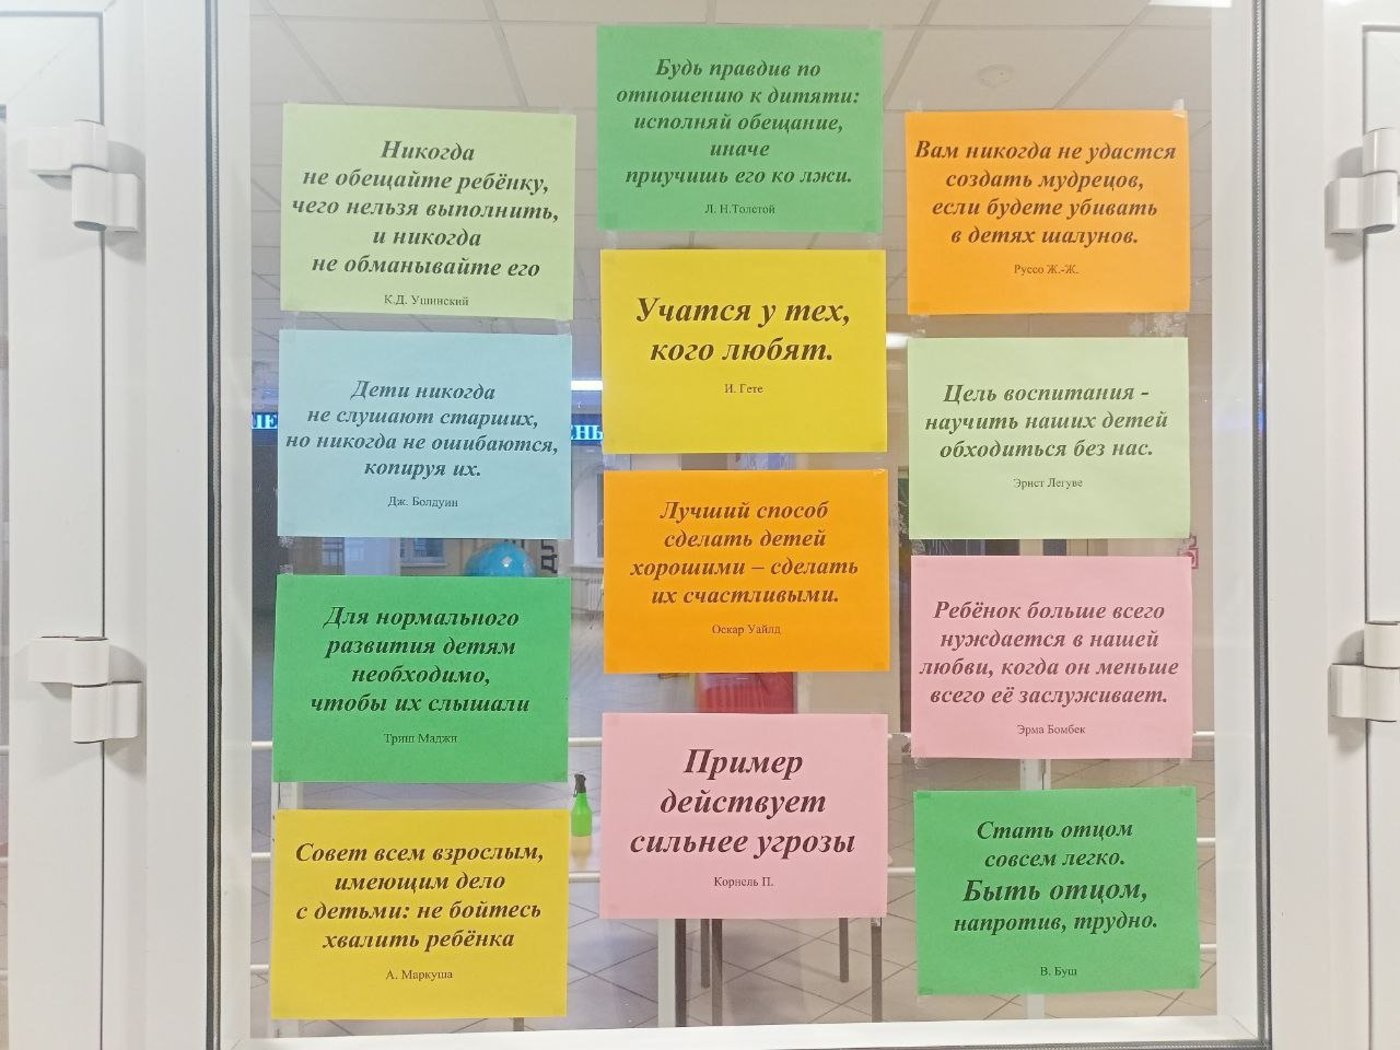 Никогда
не обещайте ребёнку,
чего нельзя выполнить,
и никогда
не обманывайте его
К.Д. Ушинский
Дети никогда
не слушают старших,
но никогда не ошибаются,
копируя их.
Дж. Болдуин
Для нормального
развития детям
необходимо,
чтобы их слышали
Триш Маджи
Совет всем взрослым,
имеющим дело
с детьми: не бойтесь
хвалить ребёнка
А. Маркуша
Будь правдив по
отношению к дитяти:
исполняй обещание,
иначе
приучишь его ко лжи.
Л. Н.Толстой
Учатся у тех,
кого любят.
И. Гете
Лучший способ
сделать детей
хорошими – сделать
их счастливыми.
Оскар Уайлд
Пример
действует
сильнее угрозы
Корнель П.
Вам никогда не удастся
создать мудрецов,
если будете убивать
в детях шалунов.
Руссо Ж.-Ж.
Цель воспитания -
научить наших детей
обходиться без нас.
Эрнст Легуве
Ребёнок больше всего
нуждается в нашей
любви, когда он меньше
всего её заслуживает.
Эрма Бомбек
Стать отцом
совсем легко.
Быть отцом,
напротив, трудно.
В. Буш